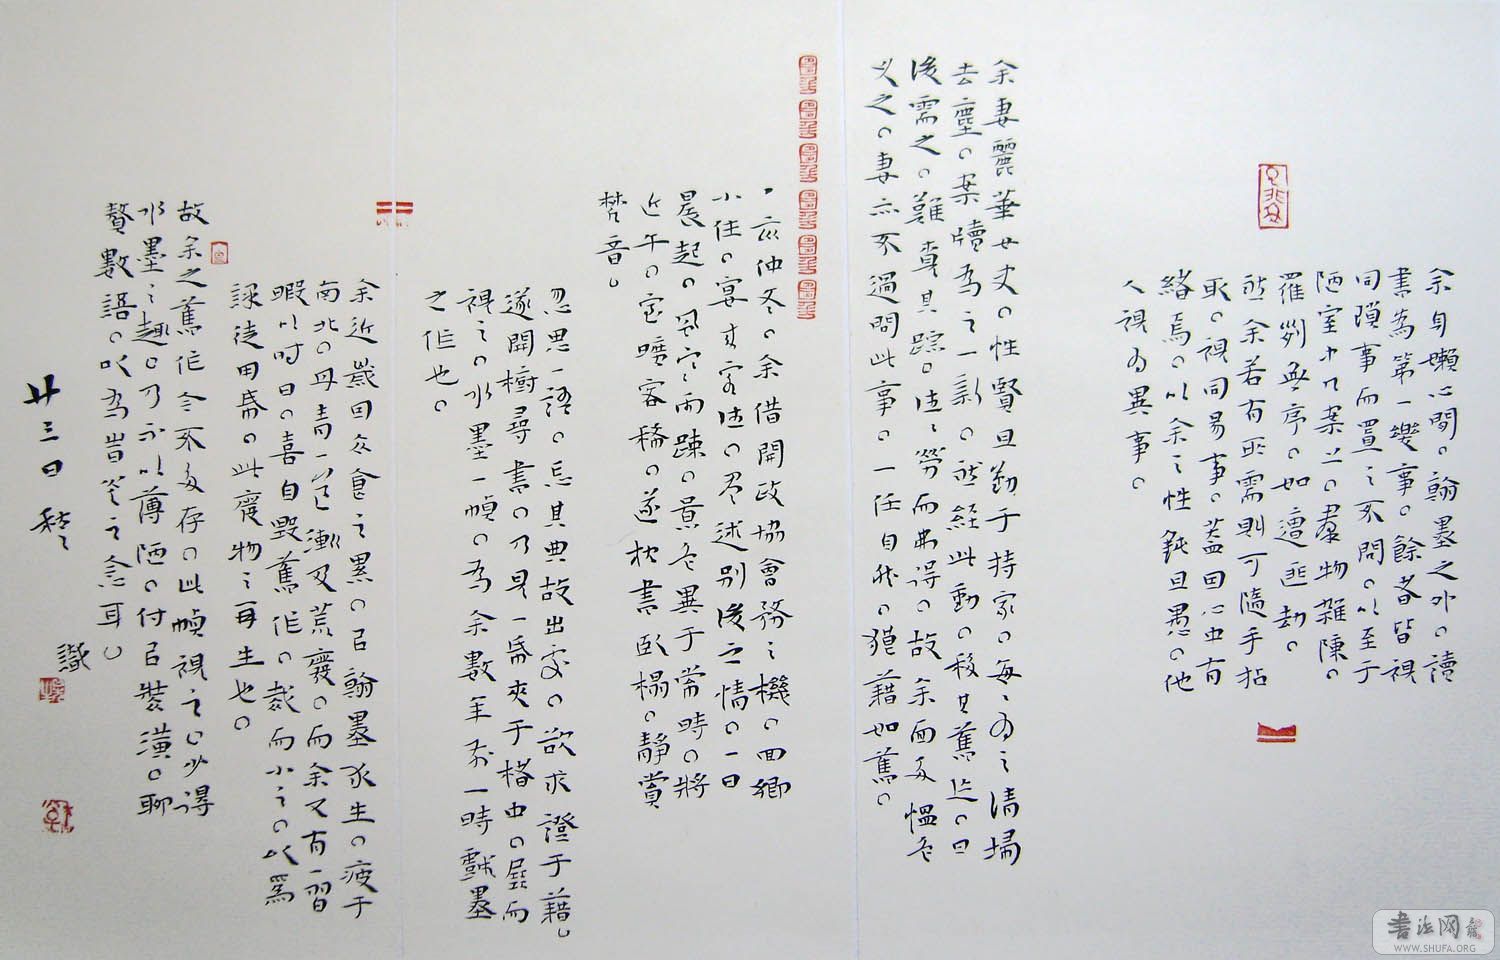 余身嬾心閒。翰墨之外。讀
書為第一樂事。餘者皆視
同瑣事而置之不問。以至于
陋室中几案上。羣物雜陳。
羅列無序。如遭匪劫。
然余若有所需則可隨手拈
取。視同易事。蓋因心中有
緒焉。以余之性鈍且愚。他
人視為異事。
余妻麗華女史。性賢且勤于持家。每每為之清掃
去塵。案牘為之一新。然經此動。移其舊迹。日
後需之。難覓其踪。往往勞而弗得。故余面多慍色
以之。妻亦不過問此事。一任自我。獲藉如舊。
丶亥仲冬。余借開政協會務之機。回鄉
小住。宴來客往。盡述別後之情。一日
晨起。風寒雨疎。景色異于常時。將
近午。室曠客稀。遂枕書臥榻。靜賞
梵音。
忽思一語。忘其典故出處。欲求證于藉。
遂開櫥尋書。乃見一舊夾于榰中。展而
視之。水墨一幀。為余數年前一時戲墨
之作也。
余近歲因众會之累。且翰墨求生。疲于
南北。丹青一道漸及荒廢。而余又有一習
暇以時日。喜自毀舊作。裁而小之。以為
録徒用焉。此廢物之再生也。
故余之舊作今不多存。此幀視之。少得
水墨之趣。乃不以薄陋。付且裝潢。聊
贅數語。以為昔筌之念耳。
廿三日 識
書法网
WWW.SHUFA.ORG